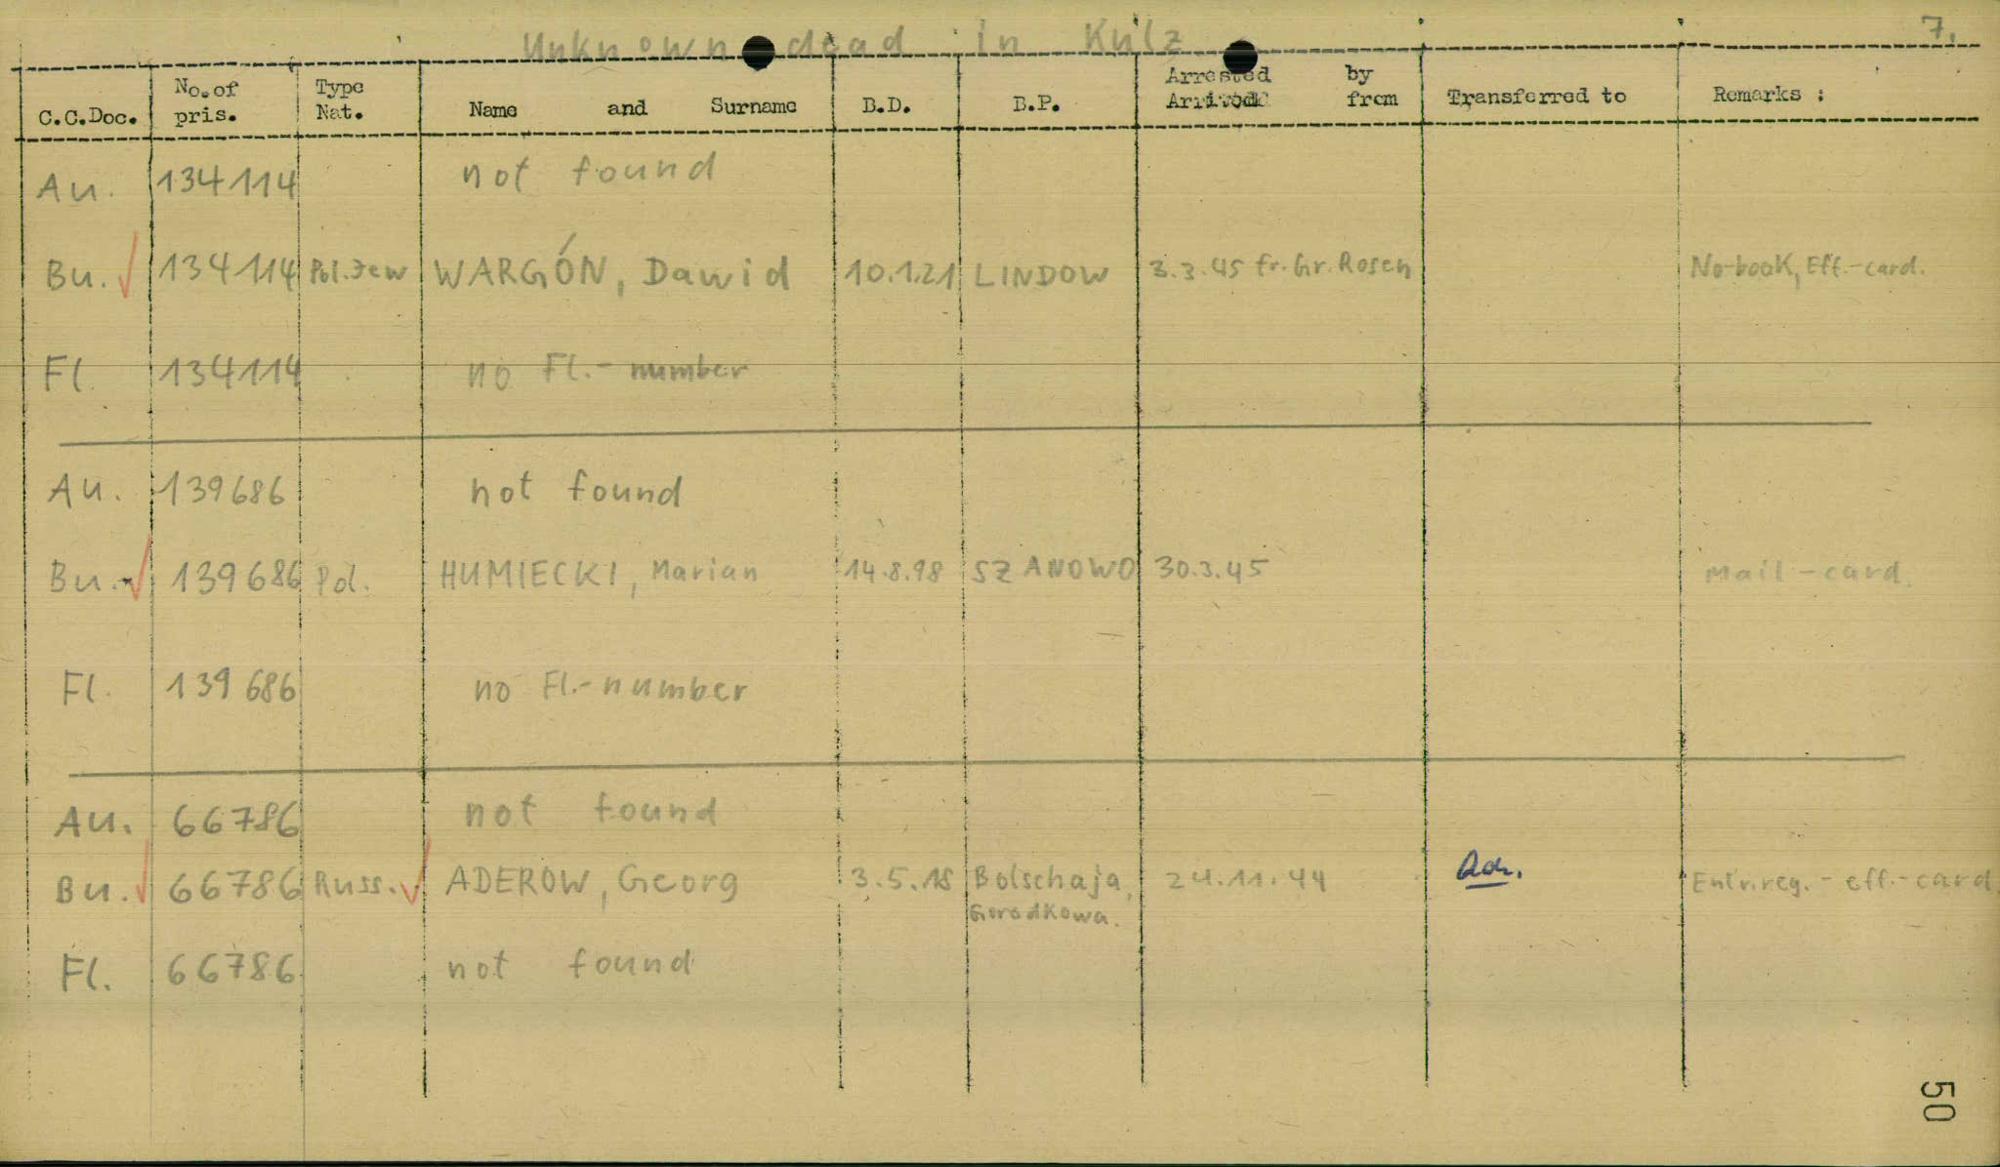 Unknown dead in Külz 7.
C.C.Doc. No. of pris. Type Nat. Name and Surname B.D. B.P. Arrested by Arrived from Transferred to Remarks :
Au. 134114 not found
Bu. 134114 Pol. Jew WARGÓN, Dawid 10.1.21 LINDOW 3.3.45 fr. Gr. Rosen No-book, Eff.-card.
Fl. 134114 no Fl.-number
Au. 139686 not found
Bu. 139686 Pol. HUMIECKI, Marian 14.8.98 SZANOWO 30.3.45 Mail-card.
Fl. 139686 no Fl.-number
Au. 66786 not found
Bu. 66786 Russ. ADEROW, Georg 3.5.18 Bolschaja, 24.11.44 reg. - eff.-card
Gorodkowa.
Fl. 66786 not found
50